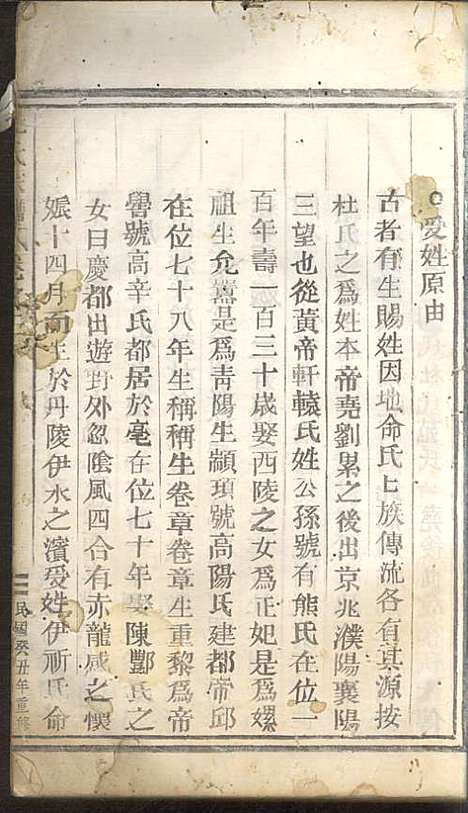 ○受姓原由
古者有生賜姓因地命氏上族傳流各有其源按
杜氏之爲姓本帝堯劉累之後出京兆濮陽襄陽
三望也從黃帝軒轅氏姓公孫號有熊氏在位一
百年壽一百三十歲娶西陵之女爲正妃是爲嫘
祖生允囂是爲靑陽生顓頊號高陽氏建都帝邱
在位七十八年生稱稱生卷章卷章生重黎爲帝
嚳號高辛氏都居於亳在位七十年娶陳酆氏之
女曰慶都出遊對外忽陰風四合有赤龍感之懷
娠十四月而生於丹陵伊水之濱受姓伊祈氏命
民國癸丑年重修